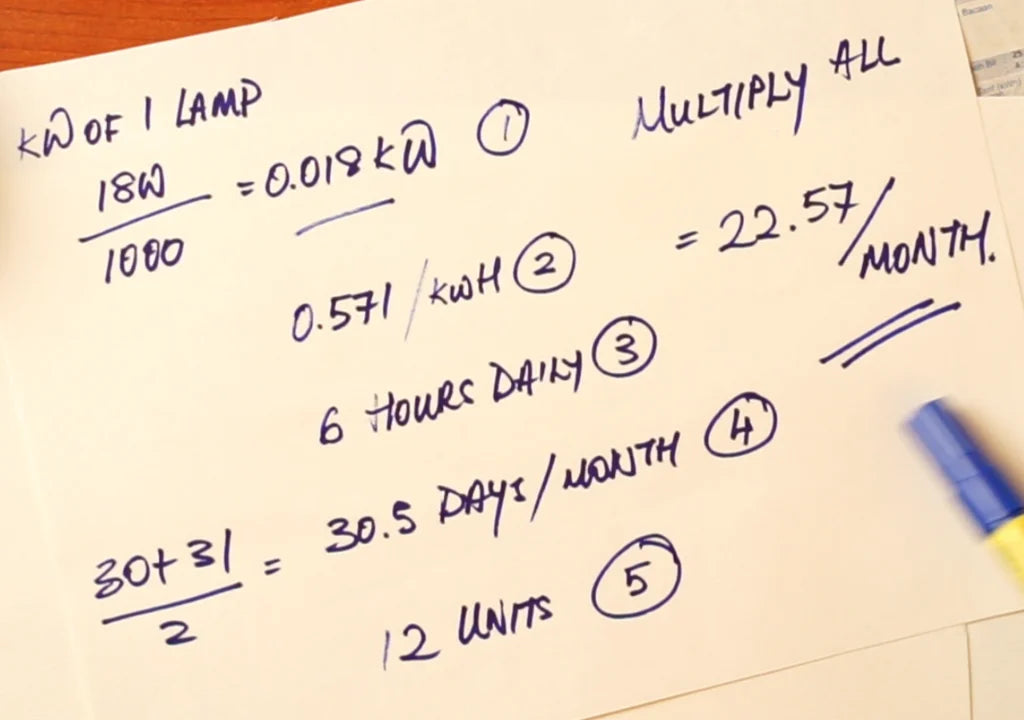 KW OF 1 LAMP
18W
1000
= 0.018 KW ①
0.571 / KWH ②
6 HOURS DAILY ③
30+31
2
= 30.5 DAYS/MONTH ④
12 UNITS ⑤
MULTIPLY ALL
= 22.57/MONTH.
Bacaan